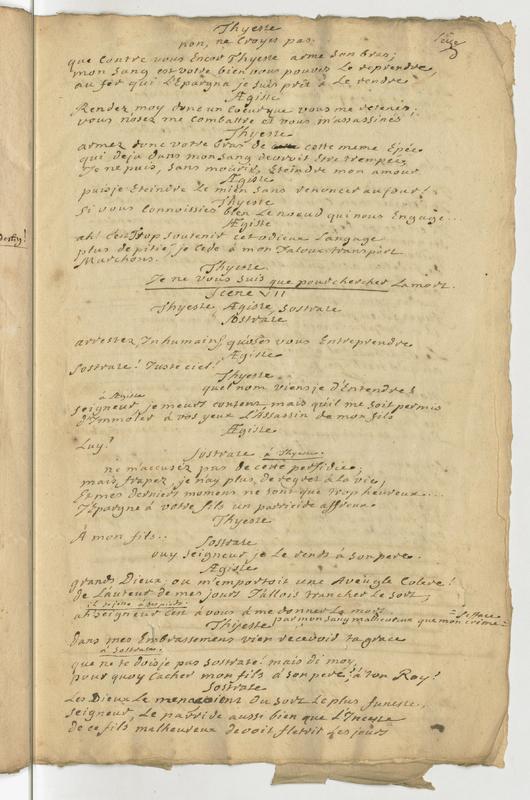 Thyeste
non, ne Croyes pas,
que Contre vous Encor Thyeste arme son bras;
mon sang est votre bien vous pouvés Le reprendre,
au fer qui L'Epargna je suis prêt à Le rendre
Ægiste
Rendez moy donc un Coeur que vous me retenés;
vous nosez me combattre et vous m'assassinés
Thyeste
armez donc votre bras de cette meme Epée
qui deja dans mon sang devroit Etre trempée,
Je ne puis, sans mourir, Eteindre mon amour
Ægiste
puisje Eteindre Le mien sans renoncer au jour!
Thyeste
Si vous Connoissiés bien Le noeud qui nous Engage...
Ægiste
ah! C'en trop soutenir cet odieux Langage
plus de pitié, je Cede à mon Jaloux transport
Marchons.
Thyeste
Je ne vous suis que pour chercher La mort.
Scene VII
Thyeste, Ægiste, Sostrate
Sostrate
arrestez, Inhumains, quosés vous Entreprendre
Ægiste
Sostrate! Juste ciel!
Thyeste
quel nom viensje d'Entendre!
à Ægiste
seigneur je meurs content mais qu'il me soit permis
d'Immoler à vos yeux L'Assassin de mon fils
Ægiste
Luy?
Sostrate à Thyeste
ne m'accusez pas de cette perfidie;
mais frapez, je n'ay plus de regret à la vie,
Et mes derniers momens ne sont que trop heureux....
J'Epargne à votre fils un parricide affreux
Thyeste
À mon fils..
Sostrate
ouy seigneur, je Le rends à son pere.
Ægiste
grands Dieux, ou m'emportoit une Aveugle Colere!
de L'auteur de mes jours J'allois trancher Le sort,
ah seigneur C'est à vous à me donner La mort
par mon sang malheureux que mon crime
Thyeste
Dans mes Embrassemens vien recevoir ta grace
à Sostrate
que ne te doisje pas Sostrate! mais di moy,
pour quoy Cacher mon fils à son pere, à ton Roy?
Sostrate
Les Dieux Le menacoient du sort Le plus funeste,
seigneur, Le parricide aussi bien que L'Inceste
de ce fils malheureux devoit fletrir Les jours